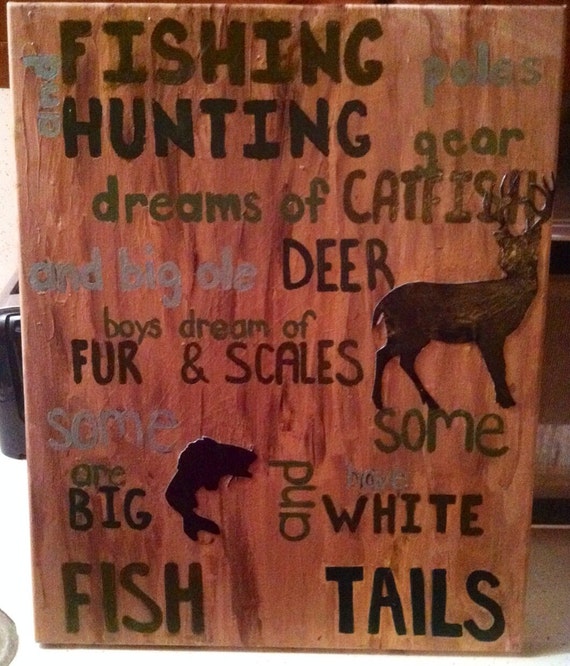 FISHING poles
and HUNTING gear
dreams of CATFISH
and big ole DEER
boys dream of
FUR & SCALES
some some
are have
BIG and WHITE
FISH TAILS